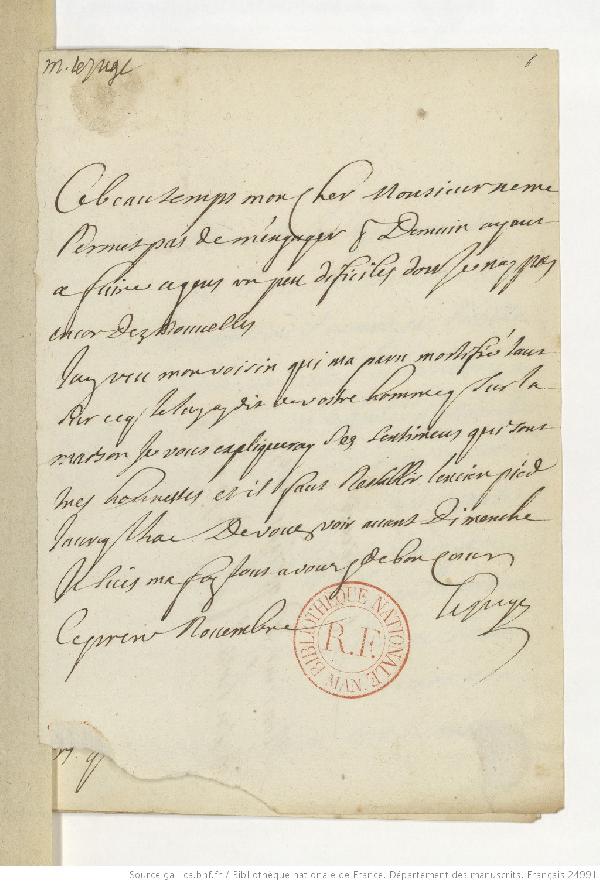 m. leJuge
6
Ce beau temps mon Cher Monsieur ne me
Permet pas de m'engager p Demain ayant
a faire a gens un peu dificiles dont Je nay pas
encor Dez Nouvelles
Jay veu mon voisin qui ma paru mortifié tant
Sur ce q Je luy ay dit de vostre homme q Sur la
maison Je vous expliqueray Sez Sentimens qui sont
tres honnestes et il faut Restablir lencien pied
Jauray lhoe De vous voir avant Dimanche
Je suis ma foy tout a vous & de bon Coeur
leJuge
Ce premr Novembre
BIBLIOTHEQUE NATIONALE MAN
R.F.
Source gallica.bnf.fr / Bibliothèque nationale de France. Département des manuscrits. Français 24991